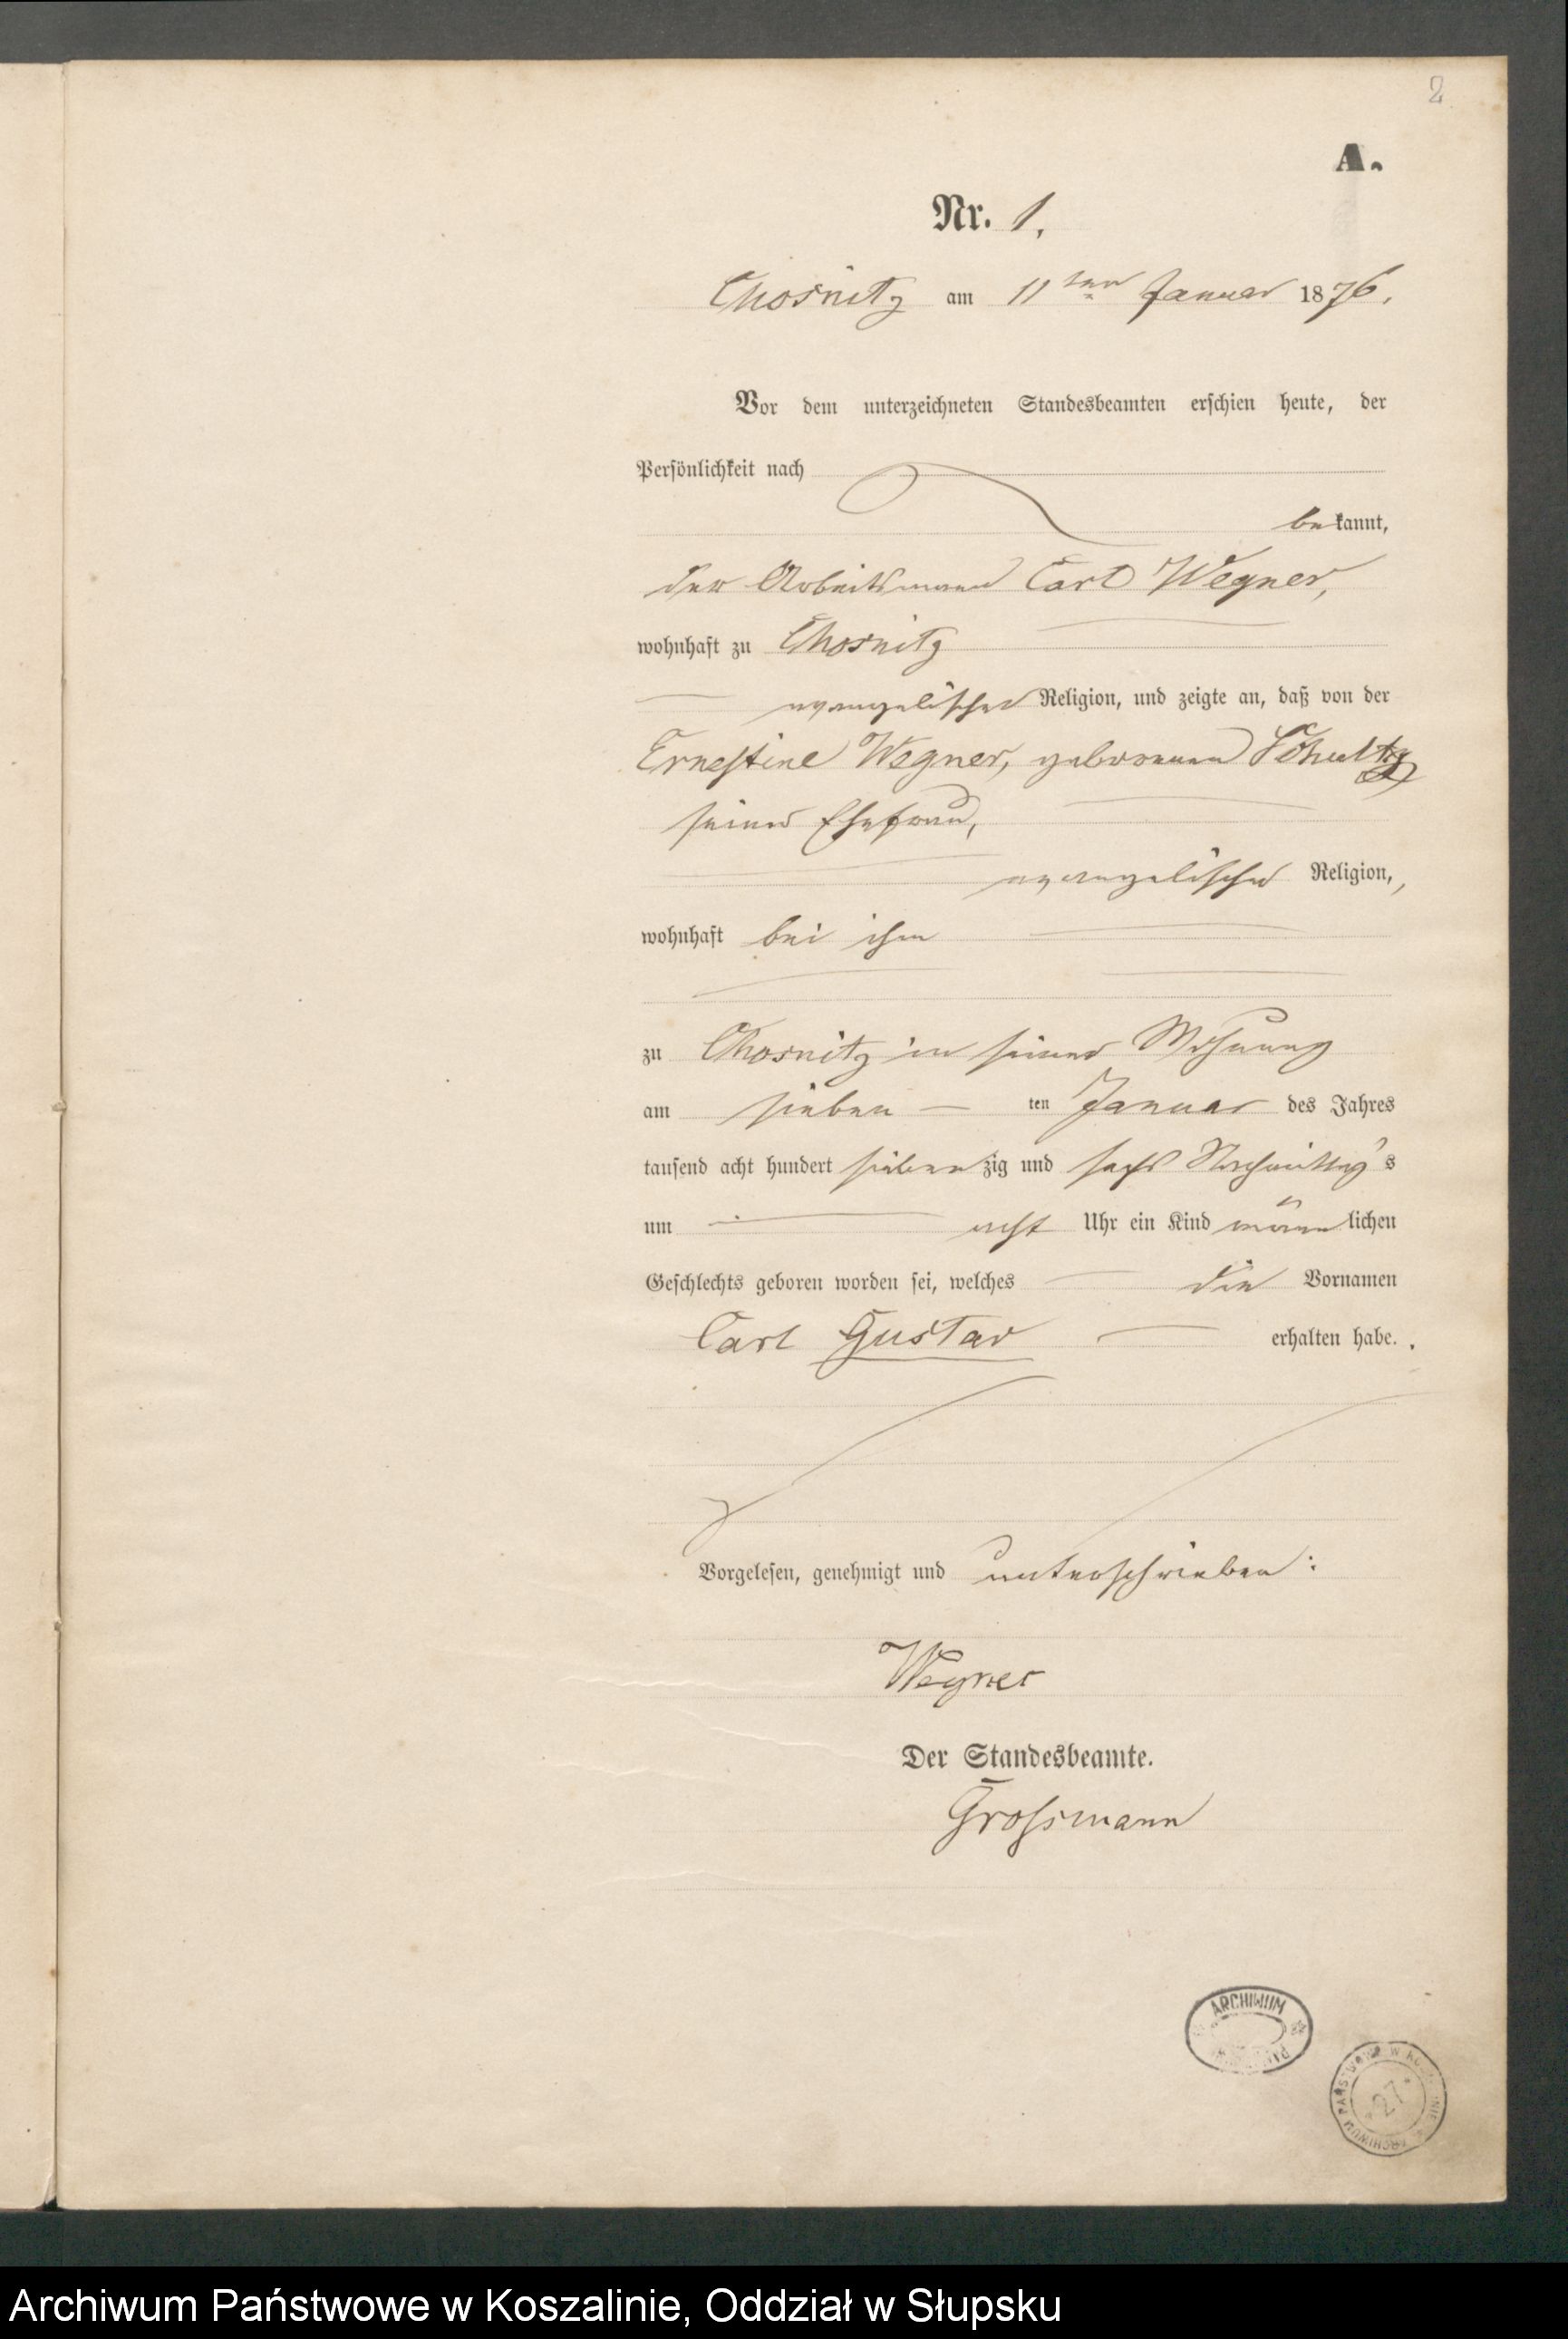 2
A.
Nr. 1.
Chosnitz am 11ten Januar 1876.
Vor dem unterzeichneten Standesbeamten erschien heute, der
Persönlichkeit nach
bekannt,
der Arbeitsmann Carl Wegner,
wohnhaft zu Chosnitz
evangelischer Religion, und zeigte an, daß von der
Ernestine Wegner, geborenen Schultz
seiner Ehefrau,
evangelischer Religion,
wohnhaft bei ihm
zu Chosnitz in seiner Wohnung
am sieben ten Januar des Jahres
tausend acht hundert siebenzig und sechs Nachmittags
um acht Uhr ein Kind männlichen
Geschlechts geboren worden sei, welches die Vornamen
Carl Gustav erhalten habe.
Vorgelesen, genehmigt und unterschrieben:
Wegner
Der Standesbeamte.
Grossmann
ARCHIWUM
ARCHIWUM PAŃSTWOWE W
27
Archiwum Państwowe w Koszalinie, Oddział w Słupsku